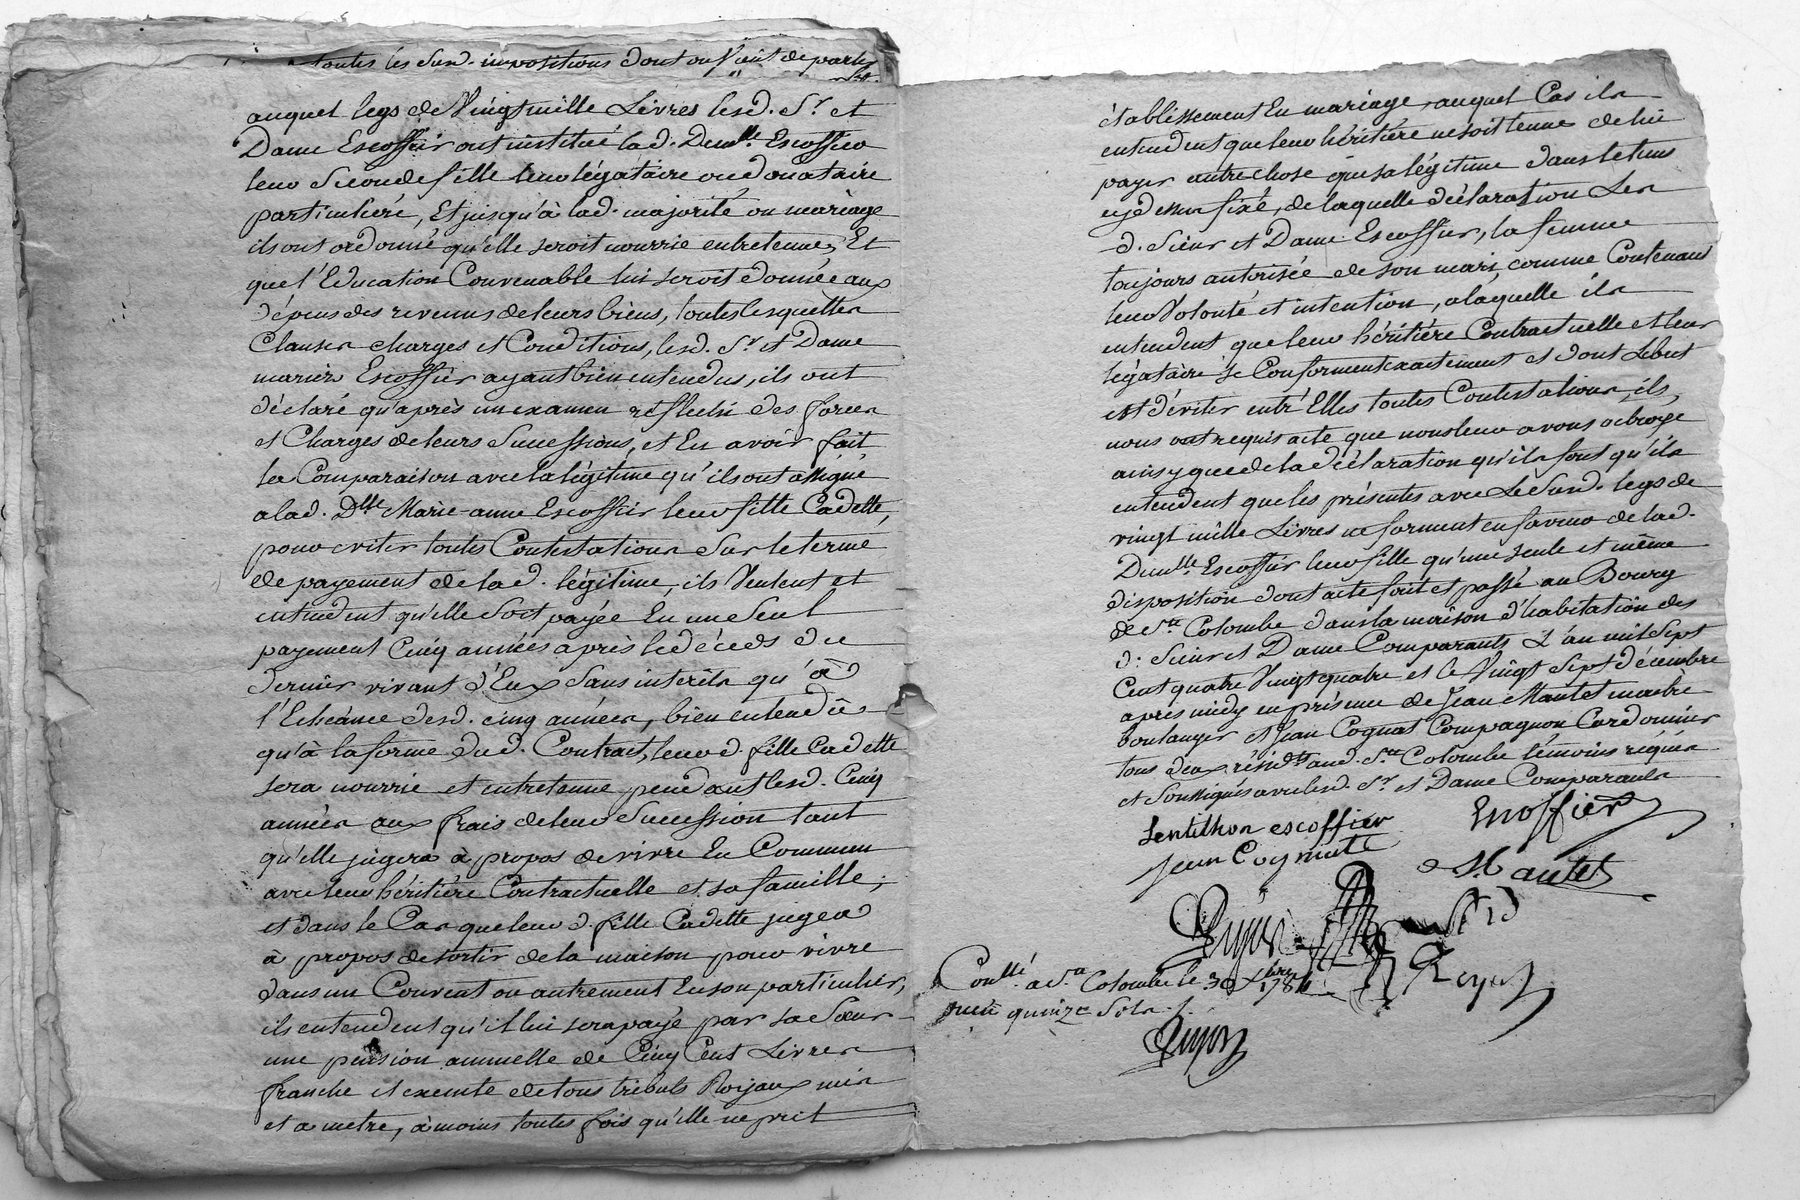 toutes les susd. impositions dont on vient de parler
auquel legs de Vingt mille Livres lesd. Sr. et
Dame Escoffier ont institué lad. Demlle. Escoffier
leur Seconde fille leur légataire ou donataire
particuliére, Et jusqu'à lad. majorité ou mariage
ils ont ordonné qu'elle seroit nourrie entretenue, Et
que l'Education Convenable lui seroit donnée aux
dépens des revenus de leurs biens, toutes lesquelles
Clauses charges et Conditions, lesd. Sr. et Dame
mariés Escoffier ayant bien entendus, ils ont
déclaré qu'après un examen réflechi des forces
et Charges de leurs Successions, et En avoir fait
la Comparaison avec la légitime qu'ils ont assigné
a lad. Dlle Marie-anne Escoffier leur fille Cadette,
pour eviter toutes Contestations Sur le terme
de payement de lad. légitime, ils Veulent et
entendent qu'elle Soit payée En un Seul
payement Cinq années après le décès du
dernier vivant d'Eux Sans intérêts qu'à
l'Echéance desd. cinq années, bien entendu
qu'à la forme dud. Contract, leurd. fille Cadette
sera nourrie et entretenue pendant lesd. Cinq
années aux frais de leur Succession tant
qu'elle jugera à propos de vivre En Commun
avec leur héritière Contractuelle et sa famille;
et dans le Cas que leurd. fille Cadette jugea
à propos de sortir de la maison pour vivre
dans un Couvent ou autrement En son particulier,
ils entendent qu'il lui sera payé par sa Sœur
une pension annuelle de Cinq Cent Livres
franche et exemte de tous tributs Roijaux mis
et a metre, à moins toutes fois qu'elle ne prit
établissement En mariage, auquel Cas ils
entendent que leur héritière ne soit tenue de lui
payer autre chose que sa légitime dans le tems
cy dessus fixé, de laquelle déclaration Les
d. Sieur et Dame Escoffier, la femme
toujours autorisée de son mari, comme Contenant
leur Volonté et intention, a laquelle ils
entendent que leur héritière Contractuelle et leur
légataire se Conforment exactement et dont Le but
est d'éviter entr'Elles toutes Contestations, ils,
nous ont requis acte que nous leur avons octroyé
ainsy que de la déclaration qu'ils font qu'ils
entendent que les présentes avec Le Susd. legs de
vingt mille Livres ne forment en faveur de lad.
Demlle. Escoffier leur fille qu'une seule et même
disposition dont acte fait et passé au Bourg
de Ste Colombe dans la maison d'habitation des
d. Sieur et Dame Comparants L'an mil Sept
Cent quatre Vingt quatre et le Vingt Sept décembre
après midy en présence de Jean Mantet maitre
boulanger et Jean Cognat Compagnon Cordonnier
tous deux résidts aud. Ste Colombe témoins requis
et Soussignés avec lesd. Sr. et Dame Comparants
Lentillon escoffier Escoffier
Jean Cognat Mantet
Guyon
Contllé. a Ste Colombe le 30 Xbre 1784
quinze Sols
Guyon